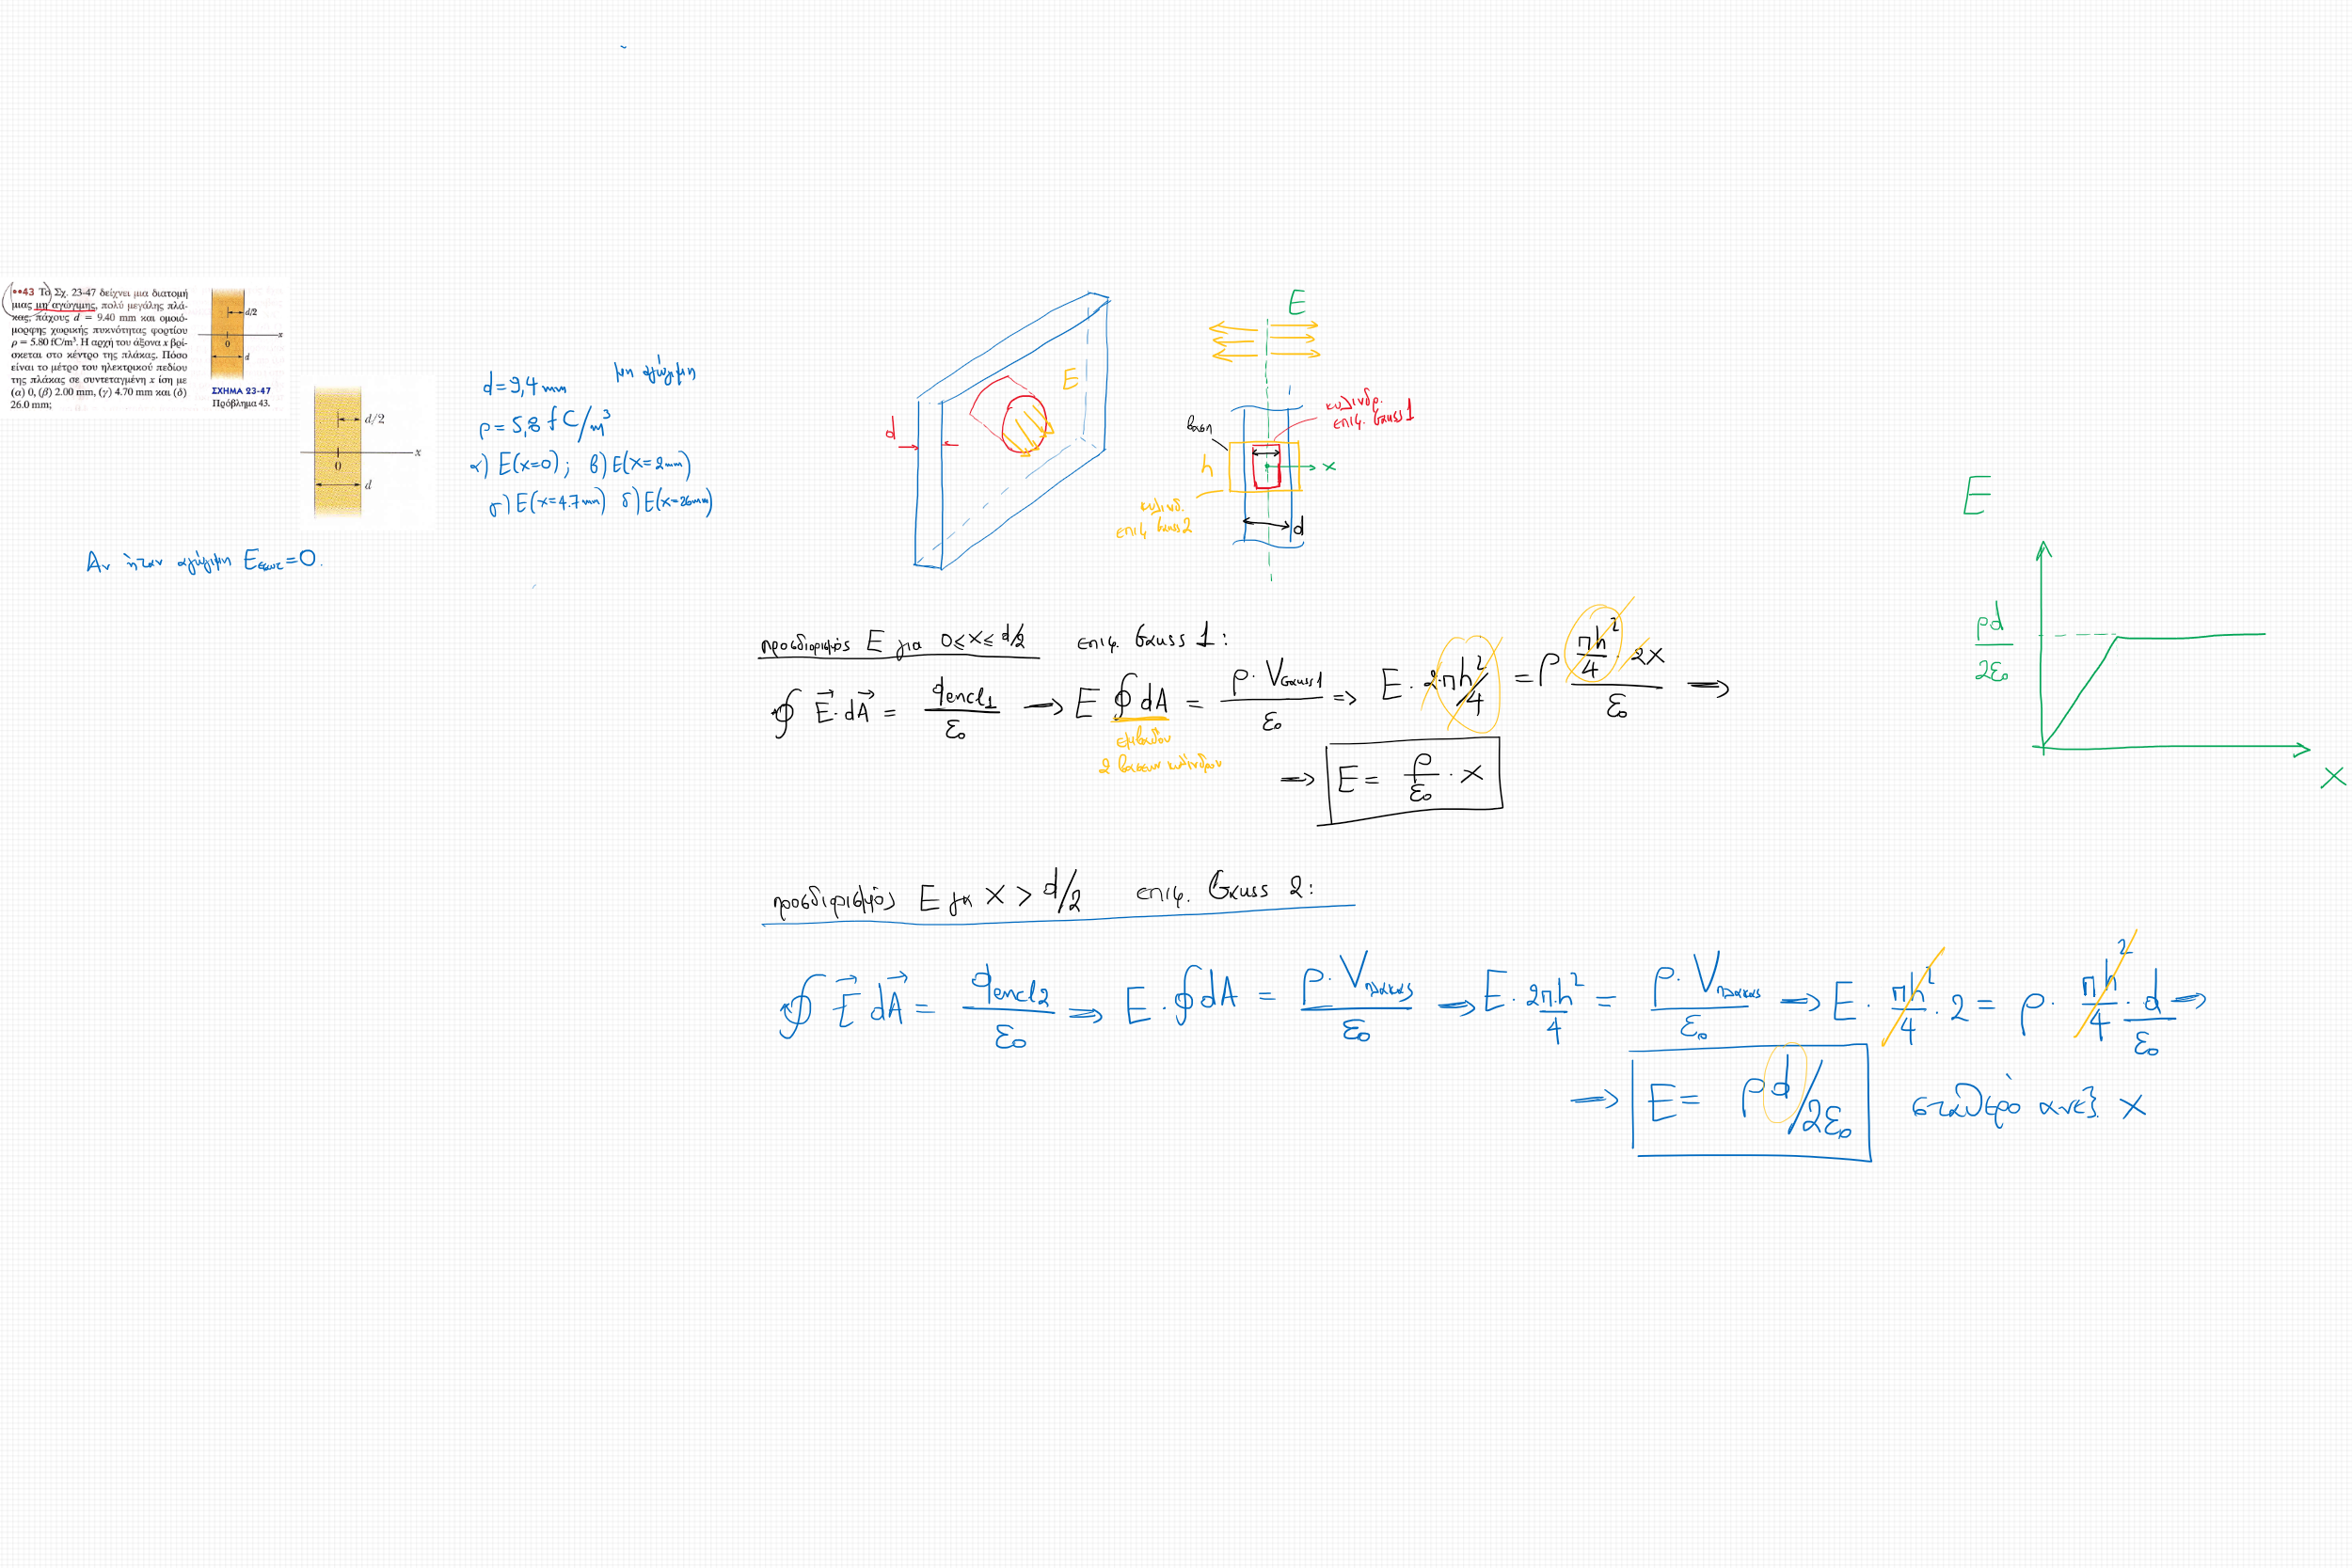 ••43 Το Σχ. 23-47 δείχνει μια διατομή
μιας μη αγώγιμης, πολύ μεγάλης πλά-
κας, πάχους d = 9.40 mm και ομοιό-
μορφης χωρικής πυκνότητας φορτίου
ρ = 5.80 fC/m³. Η αρχή του άξονα x βρί-
σκεται στο κέντρο της πλάκας. Πόσο
είναι το μέτρο του ηλεκτρικού πεδίου
της πλάκας σε συντεταγμένη x ίση με
(α) 0, (β) 2.00 mm, (γ) 4.70 mm και (δ)
26.0 mm;
d/2
x
0
d
ΣΧΗΜΑ 23-47
Πρόβλημα 43.
d/2
x
0
d
d=9,4 mm μη αγώγιμη
ρ=5,8 fC/m³
α) E(x=0); β) E(x=2mm)
γ) E(x=4.7mm) δ) E(x=26mm)
Αν ήταν αγώγιμη Eεσωτ=0.
d
E
E
κυλινδρ.
επιφ. Gauss 1
βαση
h
x
κυλινδ.
επιφ. Gauss 2
d
προσδιορισμός E για 0≤x≤d/2 επιφ. Gauss 1:
∮ E⃗·dA⃗ = qencl1/ε₀ → E ∮ dA = ρ·VGauss1/ε₀ => E·2πh²/4 = ρ πh²/4 · 2x/ε₀ →
εμβαδον
2 βασεων κυλινδρου
→ E = ρ/ε₀ · x
προσδιορισμός E για x > d/2 επιφ. Gauss 2:
∮ E⃗ dA⃗ = qencl2/ε₀ → E·∮dA = ρ·Vπλακας/ε₀ → E·2πh²/4 = ρ·Vπλακας/ε₀ → E·πh²/4·2 = ρ·πh²/4·d/ε₀ →
→ E = ρd/2ε₀ σταθερό ανεξ. x
E
ρd/2ε₀
x